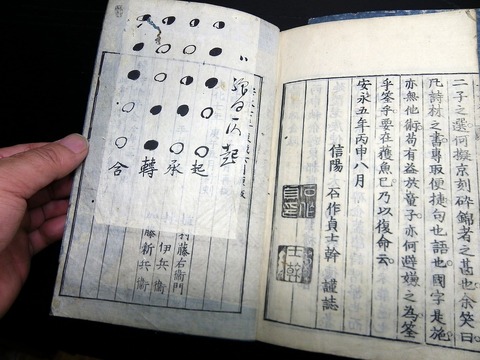 二子之選何擬京刻碎錦者之甚也余笑曰
凡詩材之書專取便捷句也語也國字是施
亦無他術苟有益於童子亦何避嫌之為筌
乎筌乎要在獲魚已乃以復命云
安永五年丙申八月
信陽 石作貞士幹 謹誌
士幹
起
起
承
轉
合
藤右衛門
伊兵衛
藤新兵衛